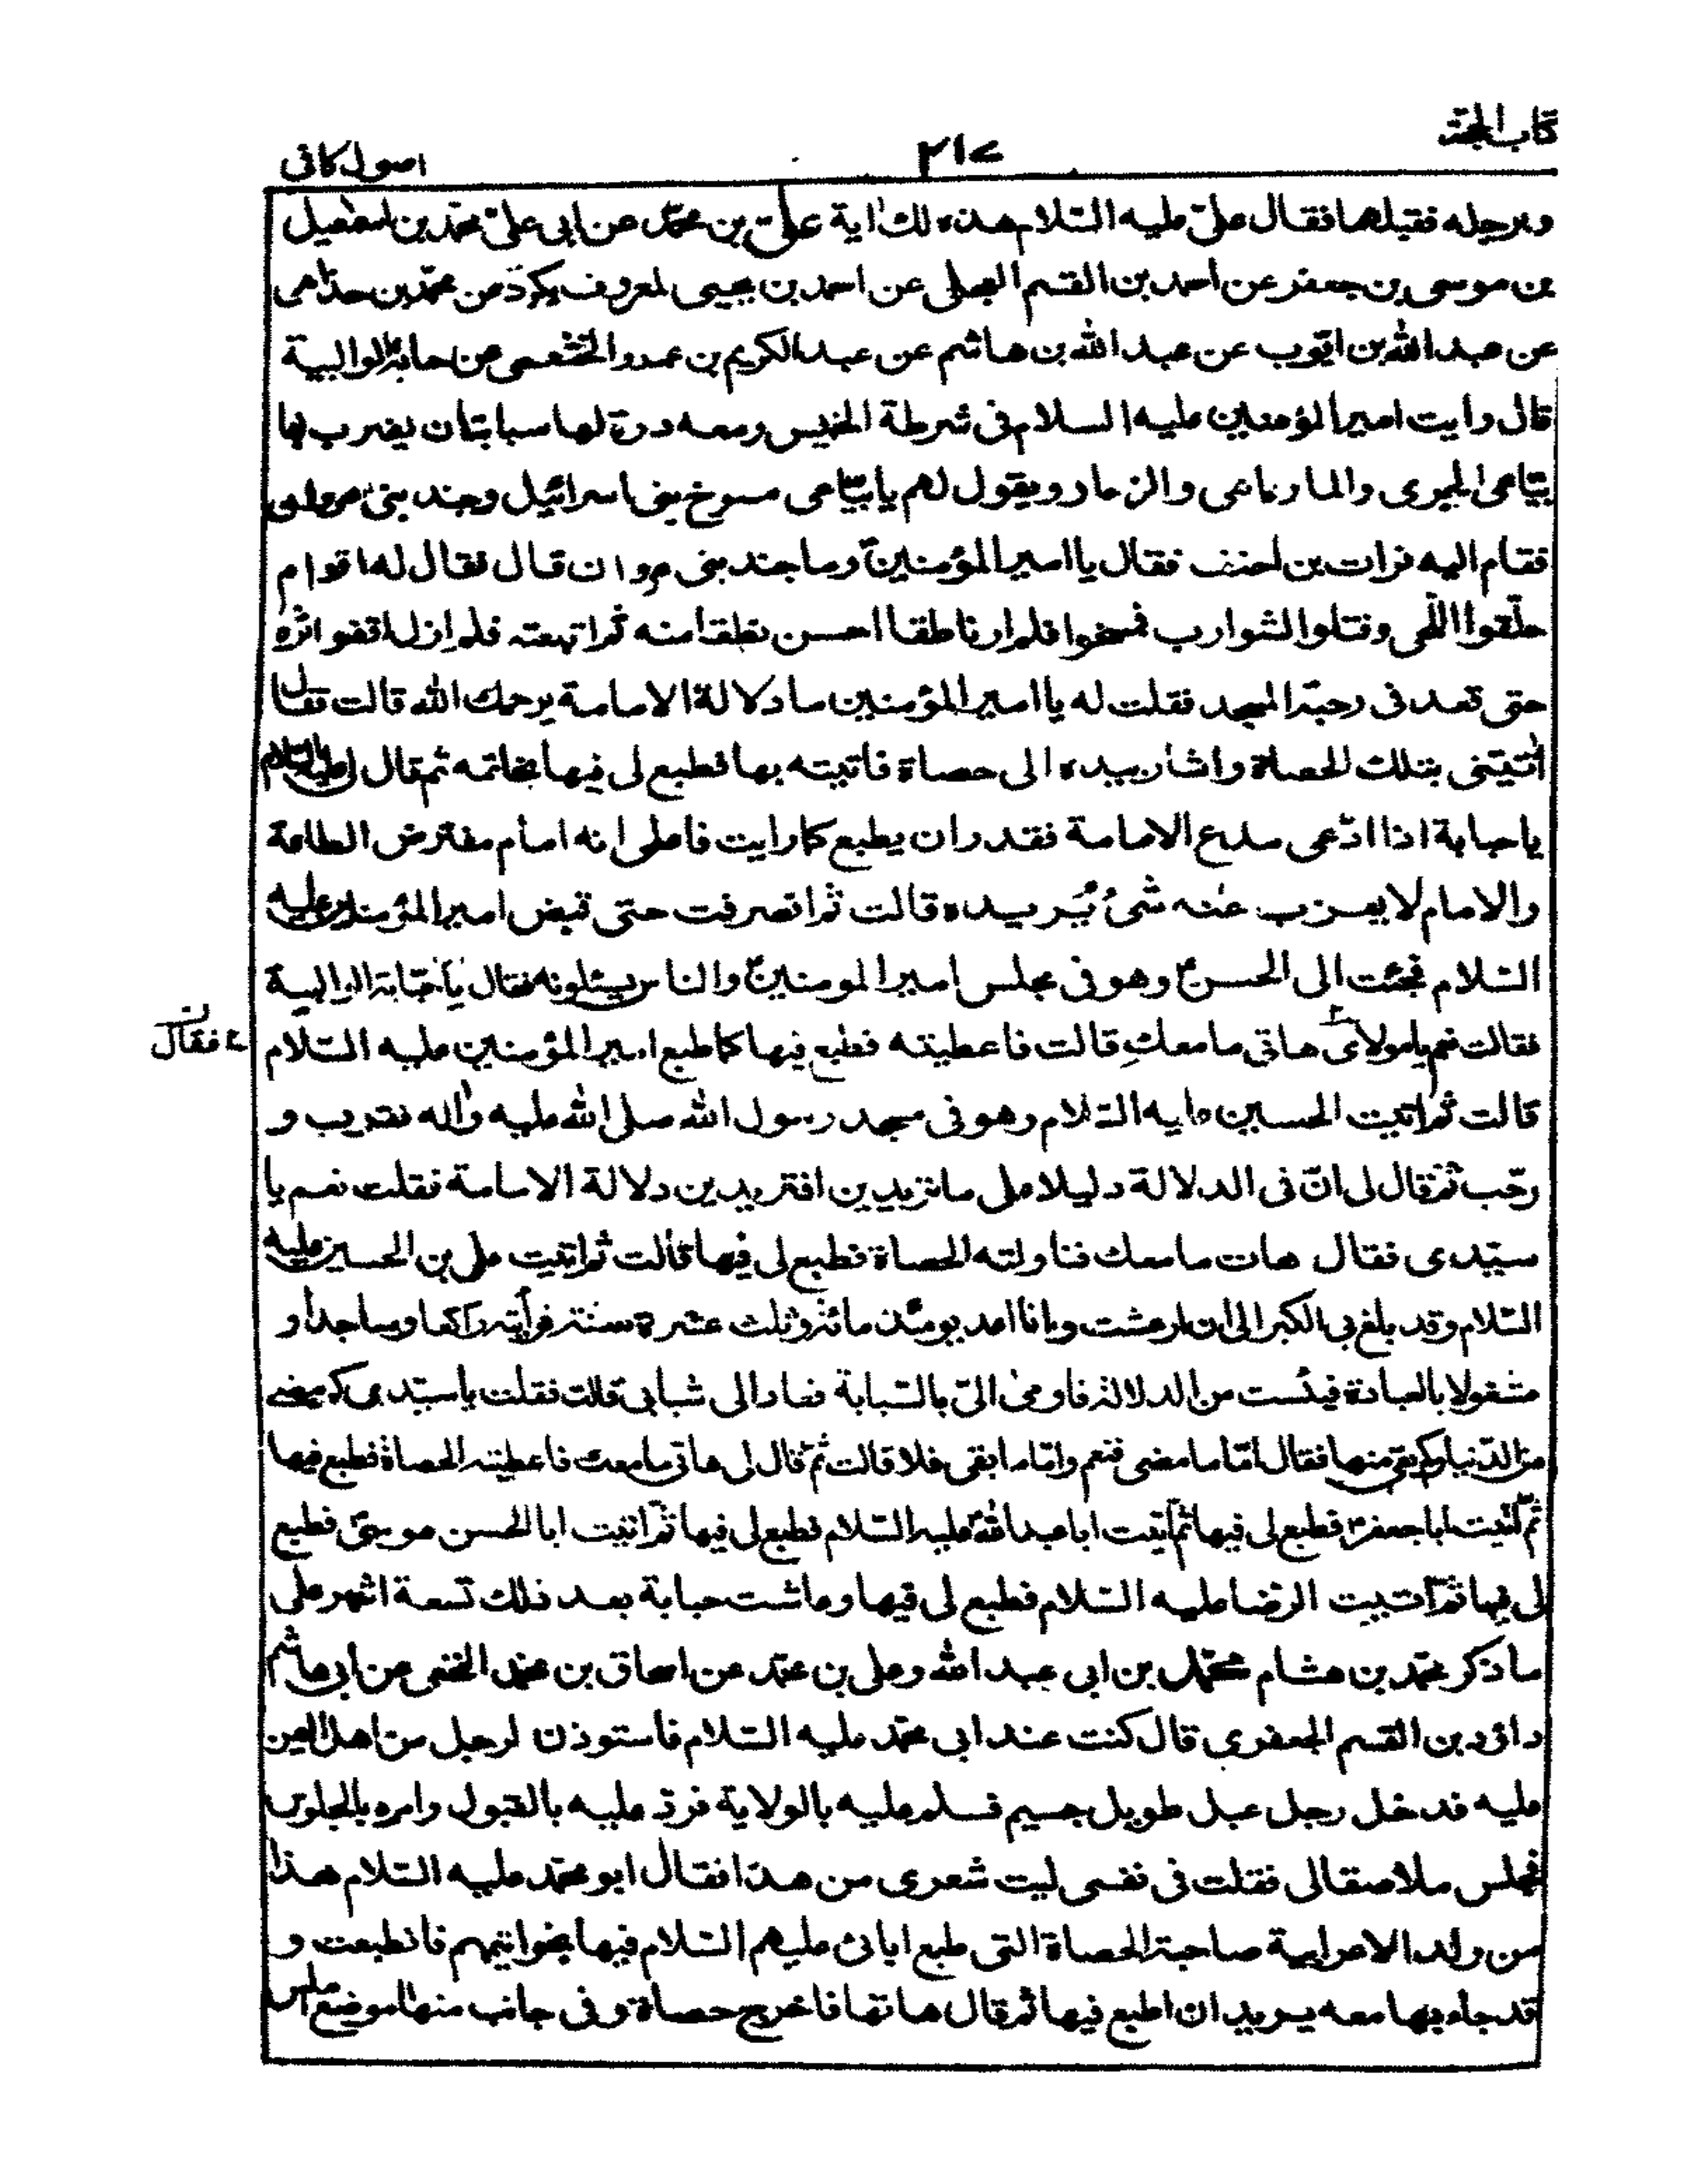 كتاب الحجة
٢١٧
اصول كافى
وبرجله فقبلها فقال علىّ عليه السّلام هذه لك اية علىّ بن محمّد عن ابى علىّ محمّد بن اسمعيل
بن موسى بن جعفر عن احمد بن القسم العجلى عن احمد بن يحيى المعروف بكرد عن محمّد بن خداهى
عن عبد الله بن ايّوب عن عبد الله بن هاشم عن عبد الكريم بن عمرو الخثعمى عن حبابة الوالبية
قال رايت امير المؤمنين عليه السلام فى شرطة الخميس ومعه درة لها سبابتان يضرب بها
بيّاعى الجرى والمارماهى والزمار ويقول لهم يا بيّاعى مسوخ بنى اسرائيل وجند بنى مروان
فقام اليه فرات بن احنف فقال يا امير المؤمنينؑ وما جند بنى مروان قال فقال له اقوام
حلّقوا اللّحى وفتلوا الشوارب فمسخوا فلم ار ناطقا احسن نطقا منه ثم اتبعته فلم ازل اقفو اثره
حتى قعد فى رحبة المسجد فقلت له يا امير المؤمنين ما دلالة الامامة يرحمك الله قالت فقال
ائتينى بتلك الحصاة واشار بيده الى حصاة فاتيته بها فطبع لى فيها بخاتمه ثم قال لى عليه السلام
يا حبابة اذا ادّعى مدع الامامة فقدر ان يطبع كما رايت فاعلمى انه امام مفترض الطاعة
والامام لا يعزب عنه شئ يُريده قالت ثم انصرفت حتى قبض امير المؤمنين عليه
السّلام فجئت الى الحسنؑ وهو فى مجلس امير المومنينؑ والناس يسئلونه فقال يا حبّابة الوالبية
فقالت نعم يا مولاى هاتى ما معكِ قالت فاعطيته فطبع فيها كما طبع امير المؤمنين عليه السّلام
فقال
قالت ثم اتيت الحسين عليه السّلام وهو فى مسجد رسول الله صلى الله عليه واله فقرب و
رحّب ثم قال لى انّ فى الدلالة دليلا على ما تريدين افتريدين دلالة الامامة فقلت نعم يا
سيّدى فقال هات ما معك فناولته الحصاة فطبع لى فيها قالت ثم اتيت على بن الحسين عليه
السّلام وقد بلغ بى الكبر الى ان ارعشت وانا اعد يومئذ مائة وثلث عشرة سنة فرأيته راكعا وساجدا و
مشغولا بالعبادة فيئست من الدلالة فاومئ الىّ بالسّبابة فعاد الى شبابى قالت فقلت يا سيّدى كم مضى
من الدّنيا وكم بقى منها فقال امّا ما مضى فنعم وامّا ما بقى فلا قالت ثمّ قال لى هاتى ما معك فاعطيته الحصاة فطبع فيها
ثم اتيت ابا جعفرؑ فطبع لى فيها ثم اتيت ابا عبد الله عليه السّلام فطبع لى فيها ثم اتيت ابا الحسن موسىؑ فطبع
لى فيها ثم اتيت الرضا عليه السّلام فطبع لى فيها وعاشت حبابة بعد ذلك تسعة اشهر على
ما ذكر محمّد بن هشام محمّد بن ابى عبد الله وعلى بن محمّد عن اسحاق بن محمّد النخعى عن ابى هاشم
داؤد بن القسم الجعفرى قال كنت عند ابى محمّد عليه السّلام فاستوذن لرجل من اهل اليمن
عليه فدخل رجل عبل طويل جسيم فسلم عليه بالولاية فردّ عليه بالقبول وامره بالجلوس
فجلس ملاصقا لى فقلت فى نفسى ليت شعرى من هذا فقال ابو محمّد عليه السّلام هذا
من ولد الاعرابية صاحبة الحصاة التى طبع ابائى عليهم السّلام فيها بخواتيمهم فانطبعت و
قد جاء بها معه يريد ان اطبع فيها ثم قال هاتها فاخرج حصاة وفى جانب منها موضع املس